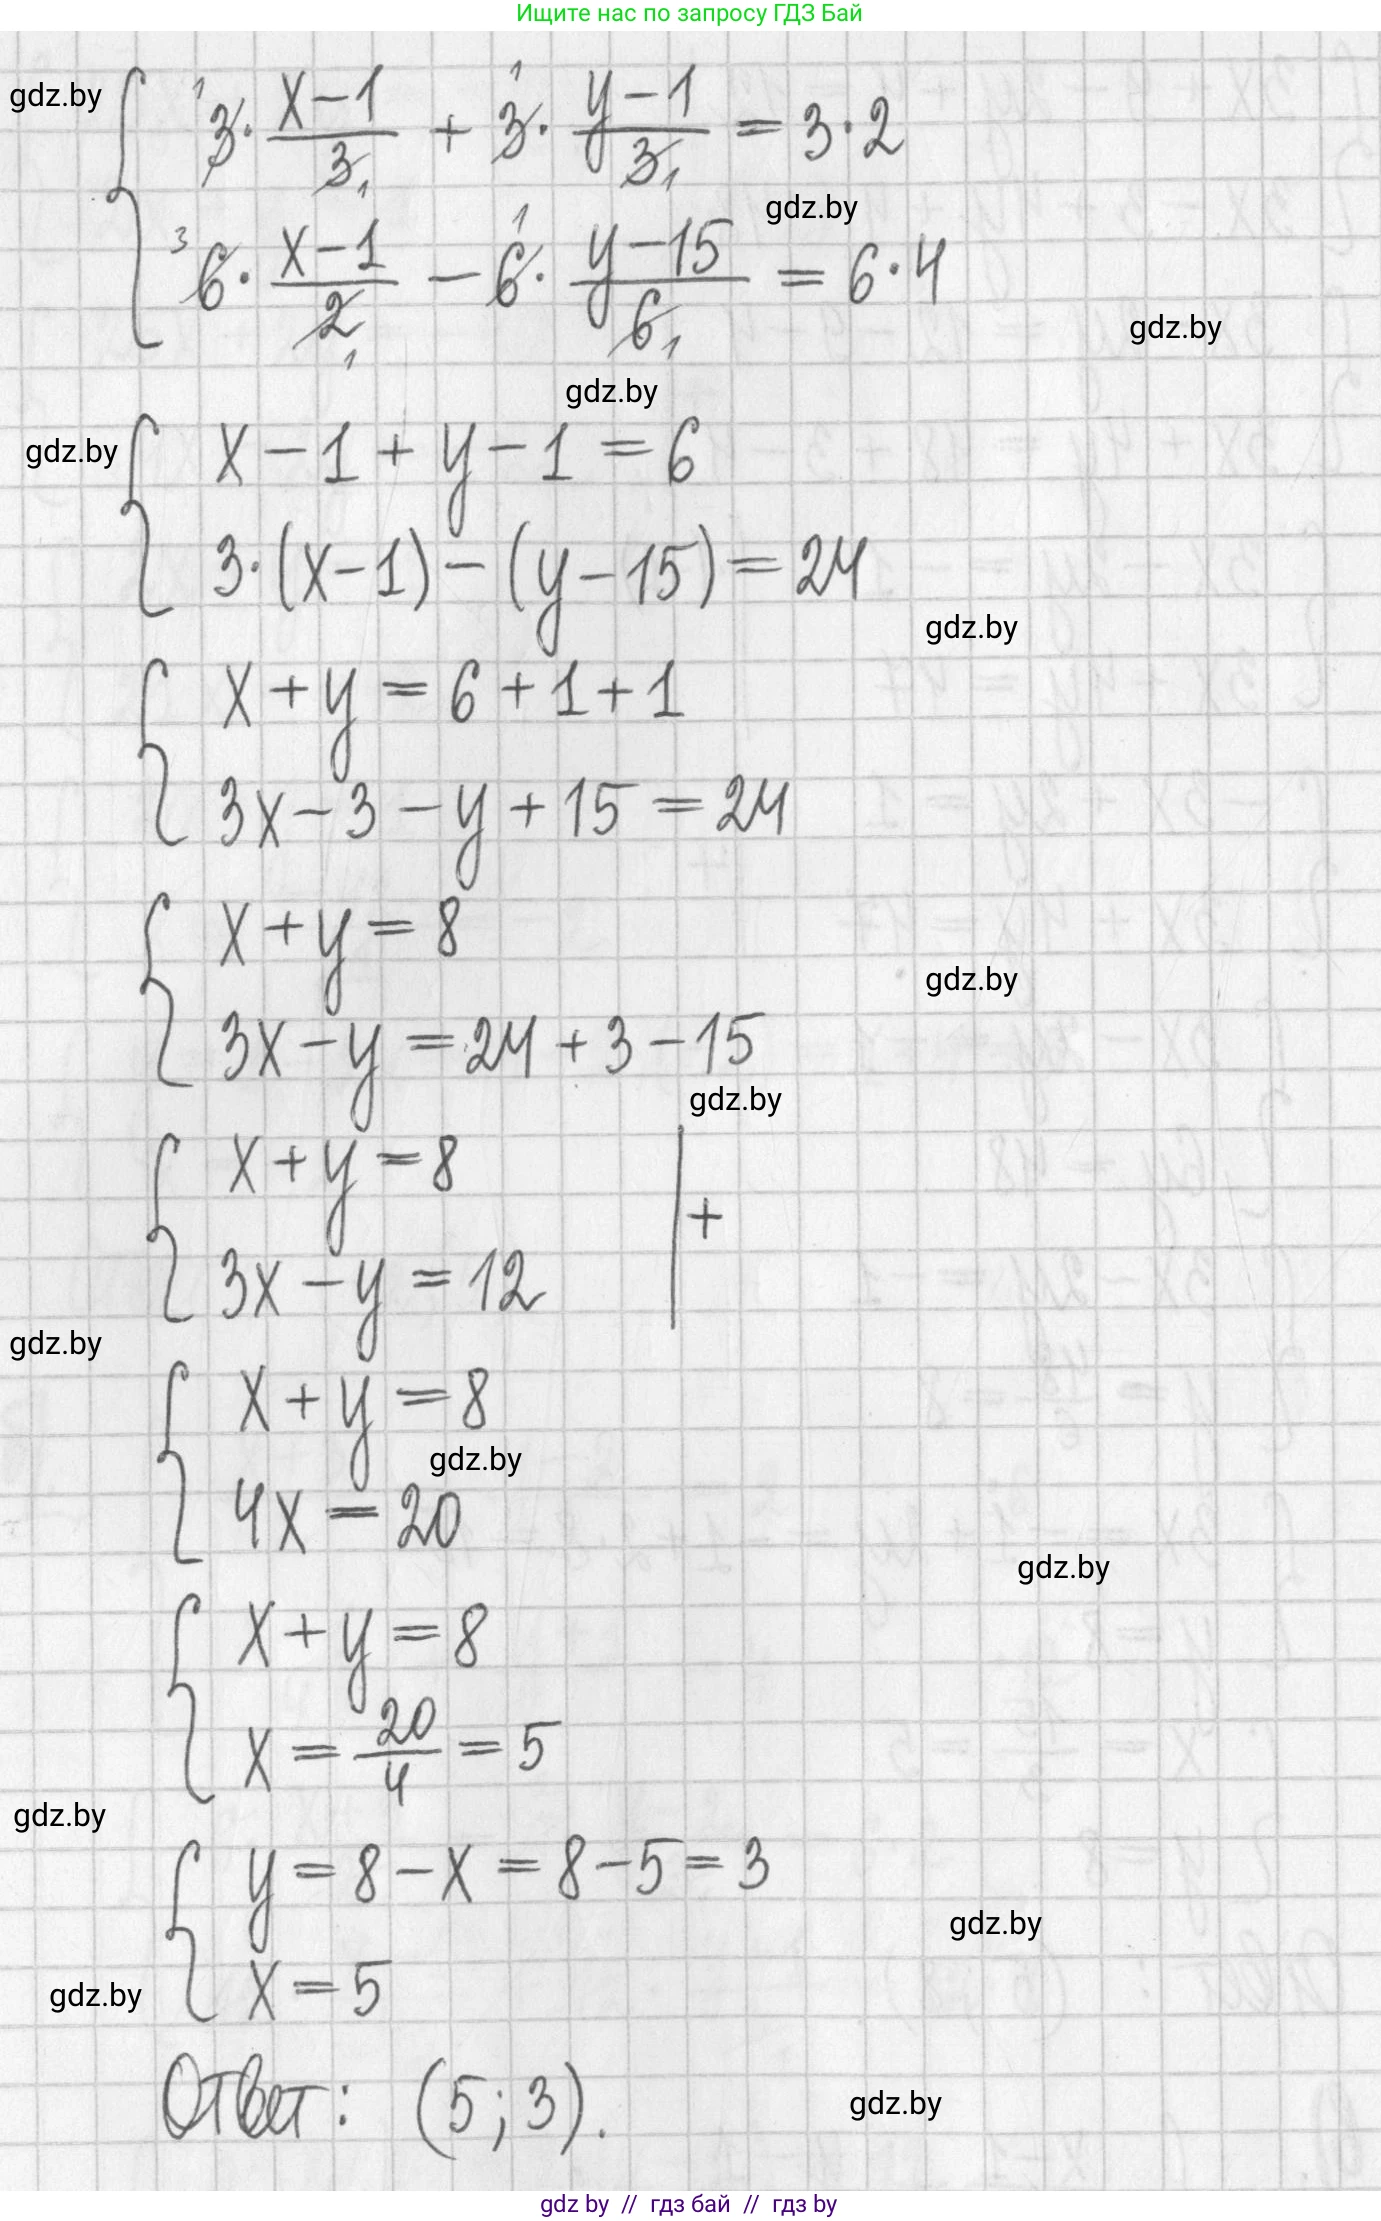 Ищите нас по запросу ГДЗ Бай
gdz.by
{ ¹3 · (x−1)/3₁ + ¹3 · (y−1)/3₁ = 3·2
gdz.by
³6 · (x−1)/2₁ − ¹6 · (y−15)/6₁ = 6·4
gdz.by
gdz.by
gdz.by
{ x−1+y−1=6
3·(x−1)−(y−15)=24
gdz.by
{ x+y=6+1+1
3x−3−y+15=24
{ x+y=8
gdz.by
3x−y=24+3−15
gdz.by
{ x+y=8 | +
3x−y=12
gdz.by
{ x+y=8
gdz.by
4x=20
gdz.by
{ x+y=8
x=20/4=5
gdz.by
{ y=8−x=8−5=3
gdz.by
x=5
gdz.by
Ответ: (5;3).
gdz.by
gdz by // гдз бай // гдз by